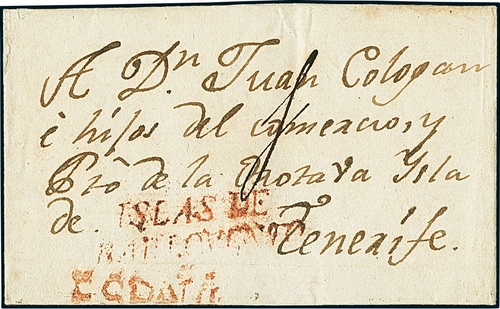 A Dn Juan Cologan
è hijos del comercio, y
Pto de la Orotava Ysla
de. Tenerife.
ISLAS DE
ESPAÑA